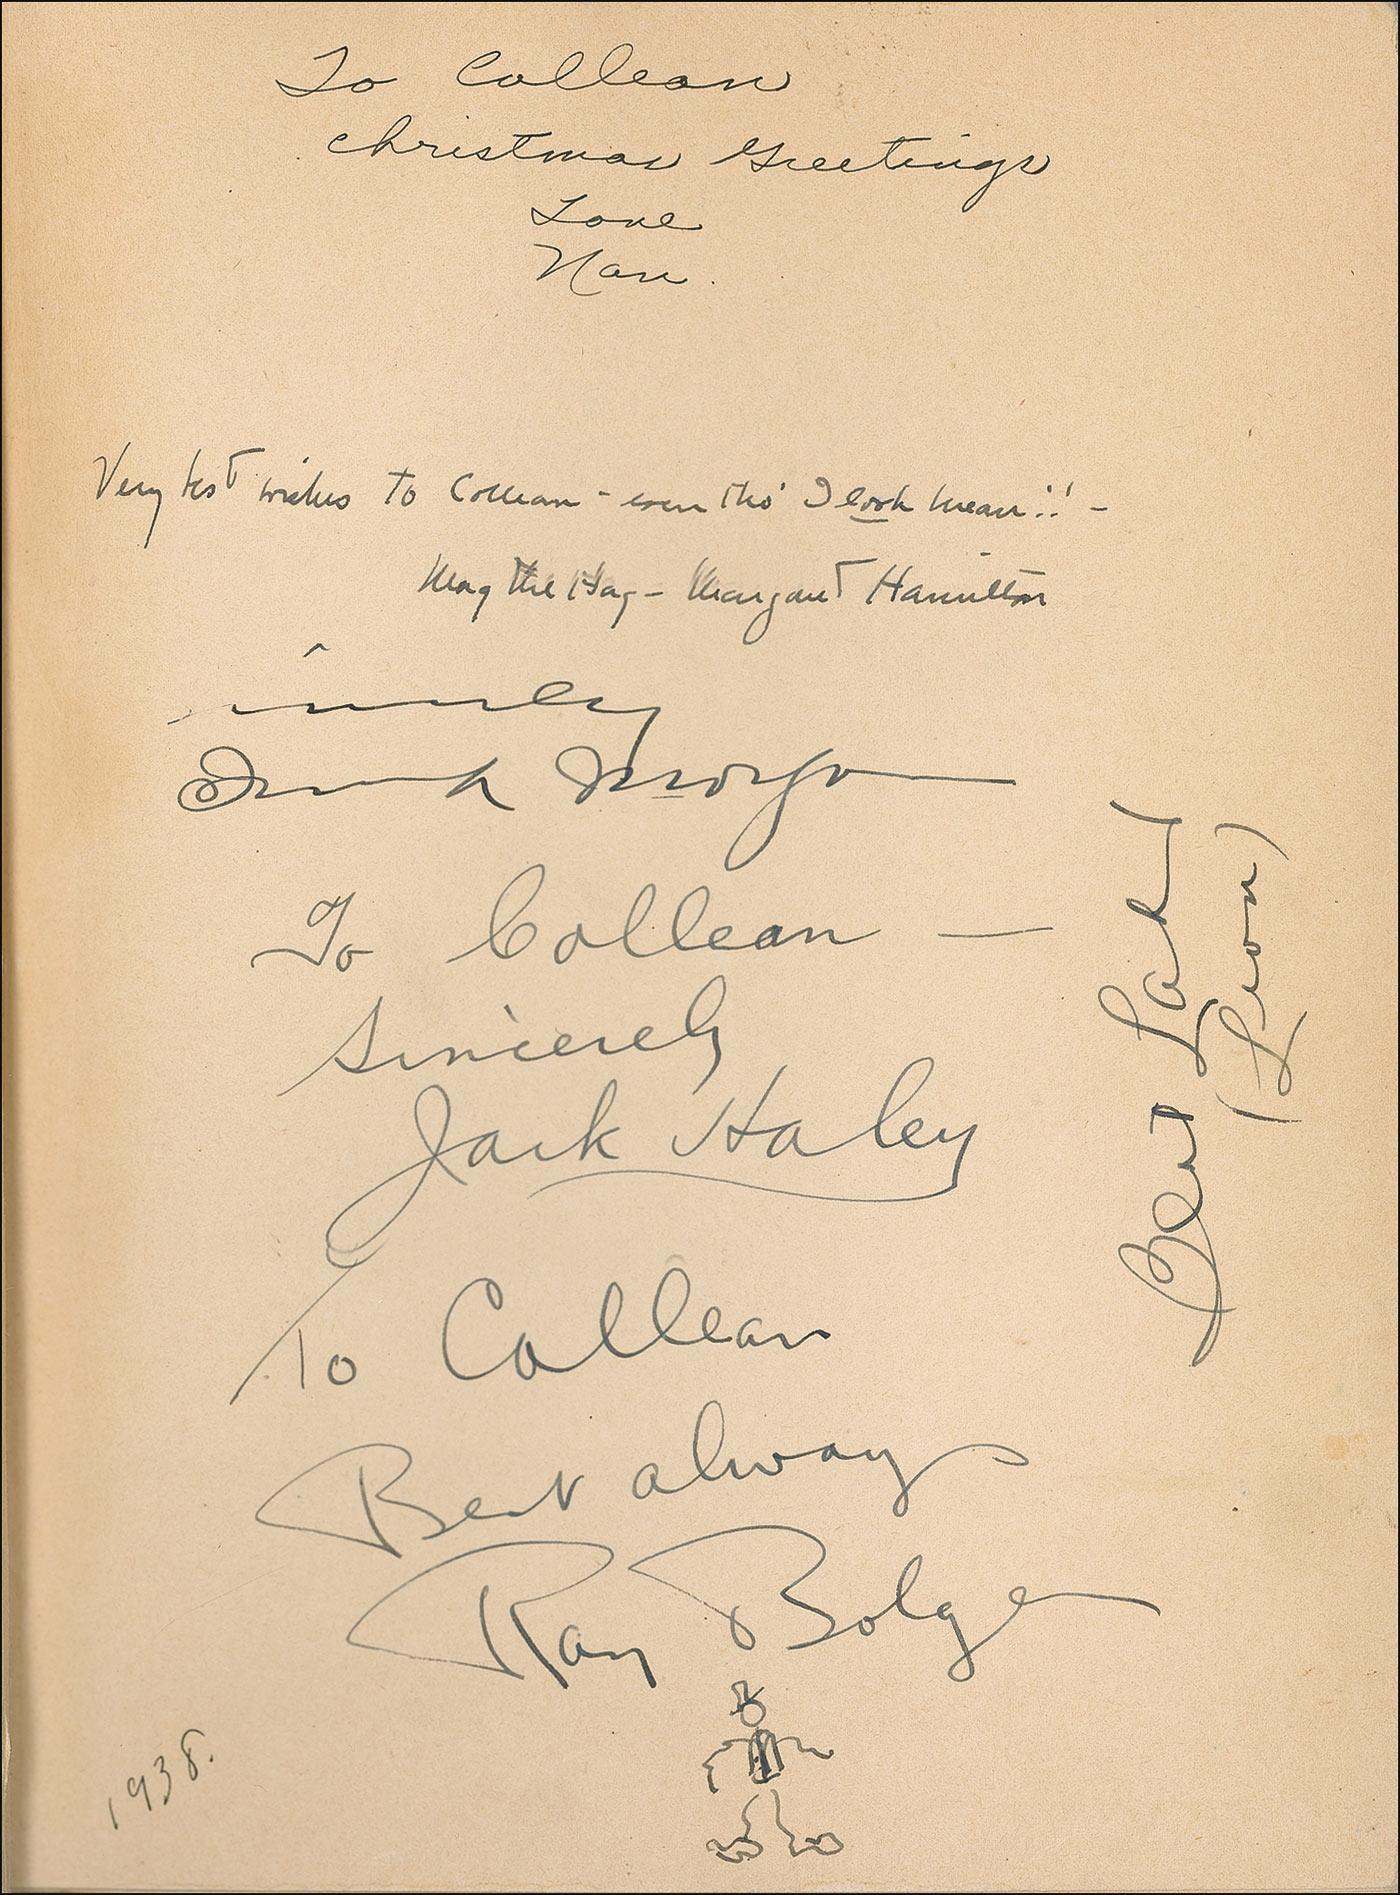 To Collean
Christmas Greetings
Love
Nan.
Very best wishes to Collean - even tho' I look mean!! -
Mag the Hag - Margaret Hamilton
Sincerely
Frank Morgan
To Collean —
Sincerely
Jack Haley
Bert Lahr
(Lion)
To Collean
Best always
Ray Bolger
1938.